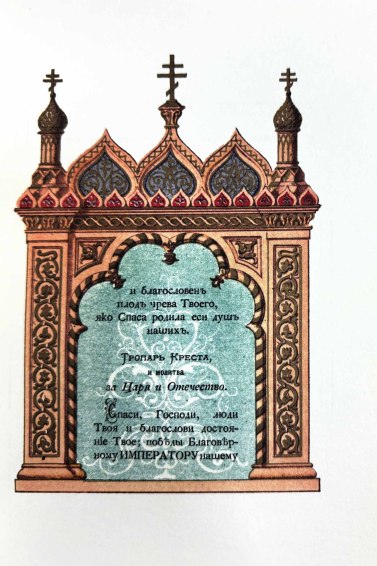 и благословенъ
плодъ чрева Твоего,
яко Спаса родила еси душъ
нашихъ.
Тропарь Креста,
и молитва
за Царя и Отечество.
Спаси, Господи, люди
Твоя и благослови достоя-
ніе Твое; побѣды Благовѣр-
ному ИМПЕРАТОРУ нашему